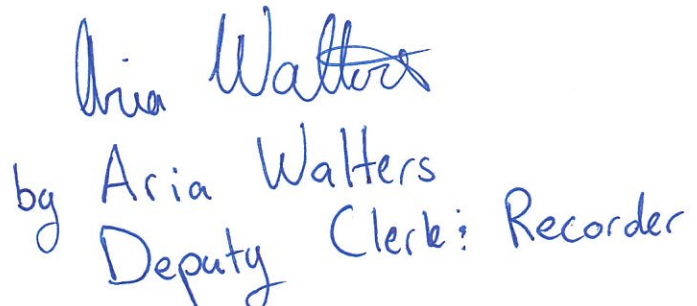 Aria Walters
by Aria Walters
Deputy Clerk & Recorder